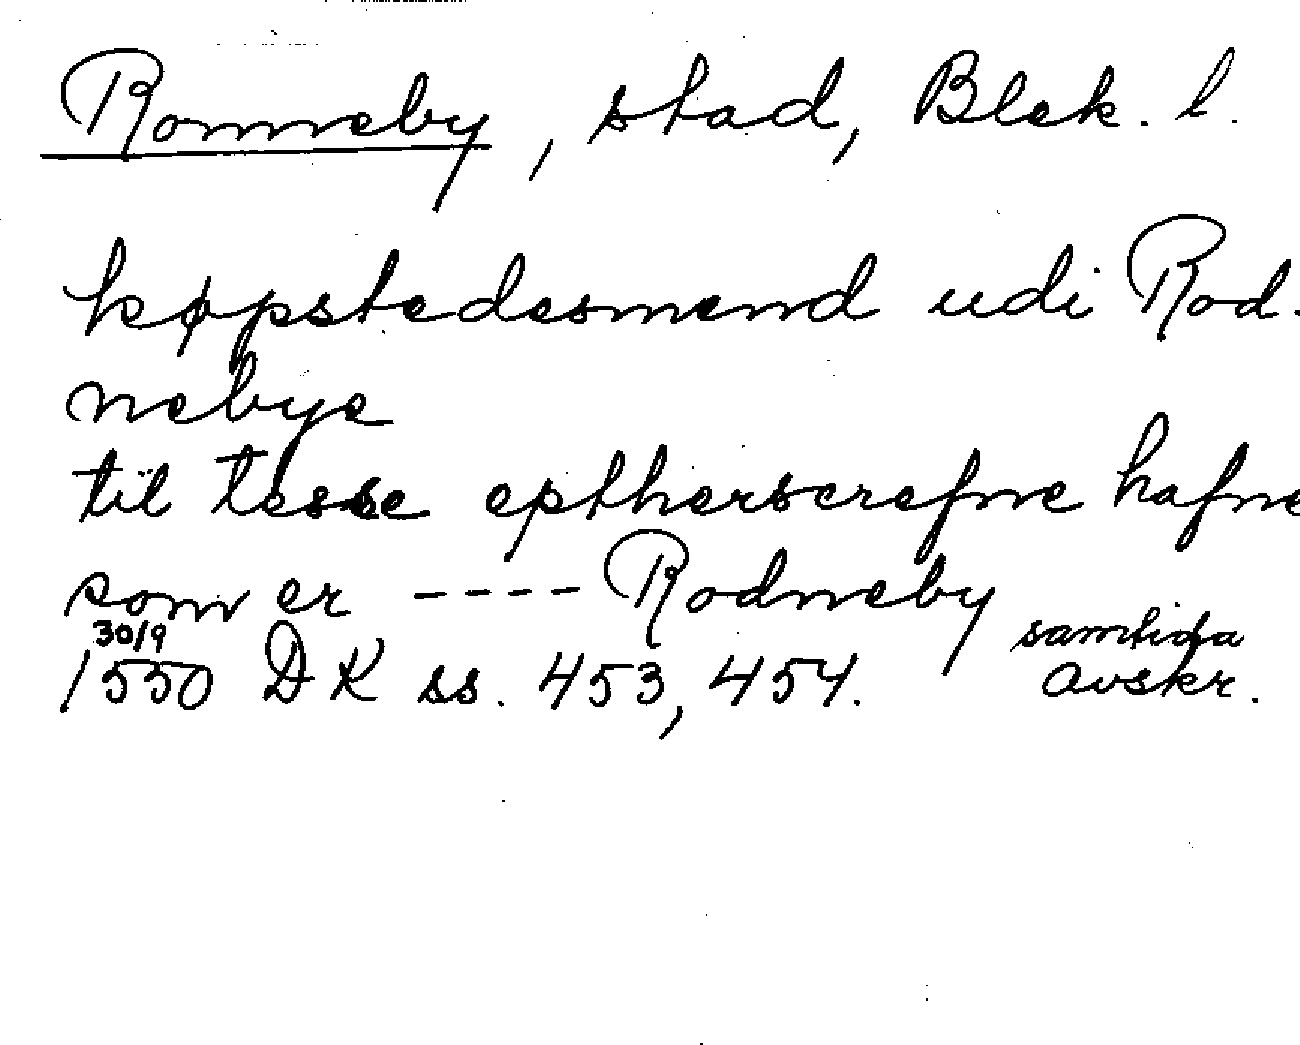 Ronneby, stad, Blek. l.
køpstedesmend udi Rod-
nebye
til tesse eptherscrefne hafne
som er ---- Rodneby
30/9 samtida
1550 DK ss. 453, 454. avskr.